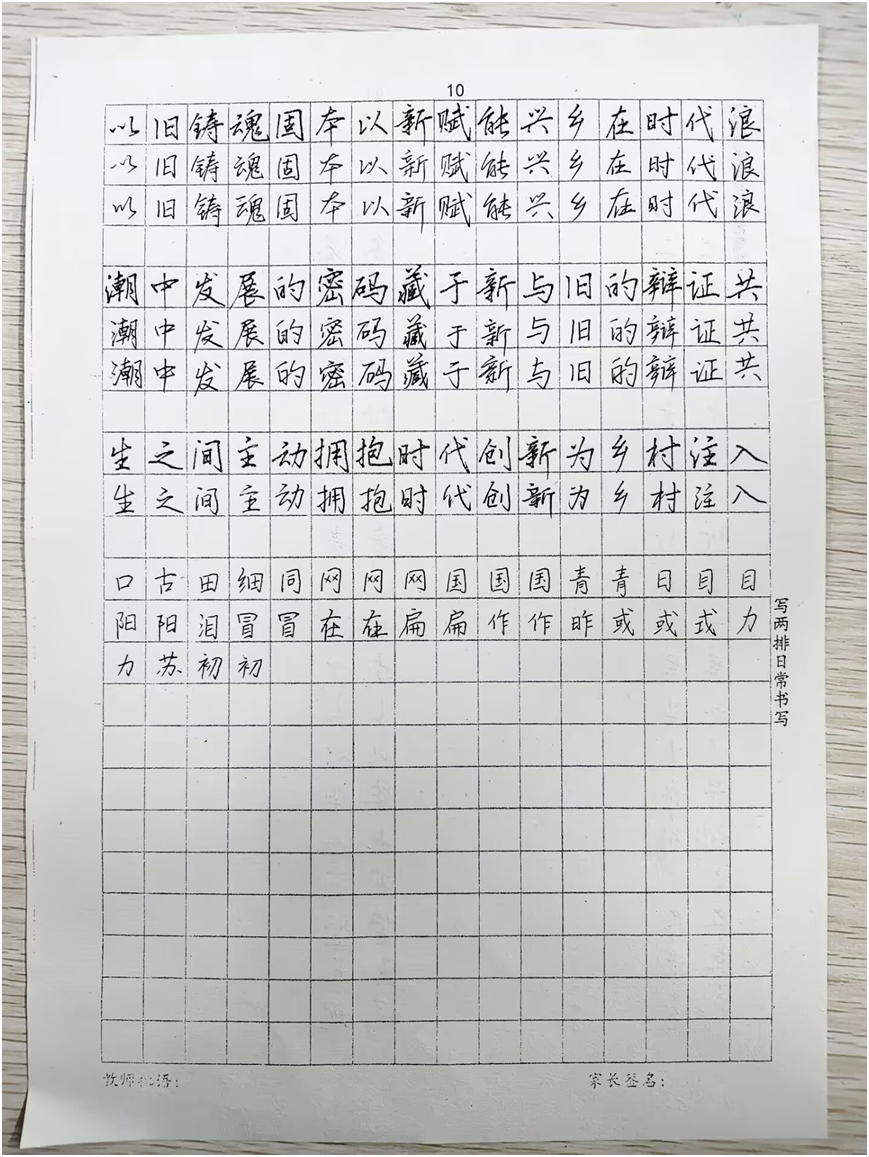 10
以旧铸魂固本以新赋能兴乡在时代浪
以旧铸魂固本以新赋能兴乡在时代浪
以旧铸魂固本以新赋能兴乡在时代浪
潮中发展的密码藏于新与旧的辩证共
潮中发展的密码藏于新与旧的辩证共
潮中发展的密码藏于新与旧的辩证共
生之间主动拥抱时代创新为乡村注入
生之间主动拥抱时代创新为乡村注入
口古田细同网网网国国国青青日目目
阳阳泪冒冒在在扁扁作作昨或或式力
力苏初初
写两排日常书写
教师批语：
家长签名：